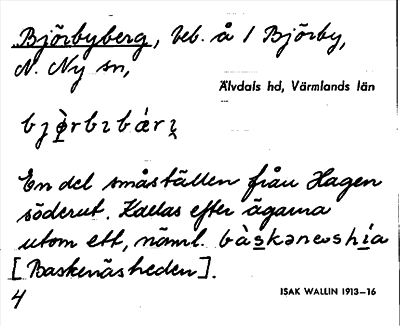 Björbyberg, beb. å 1 Björby,
N. Ny sn,
Älvdals hd, Värmlands län
En del småställen från Hagen
söderut. Kallas efter ägarna
utom ett, näml.
[Baskenäsheden].
4
ISAK WALLIN 1913–16